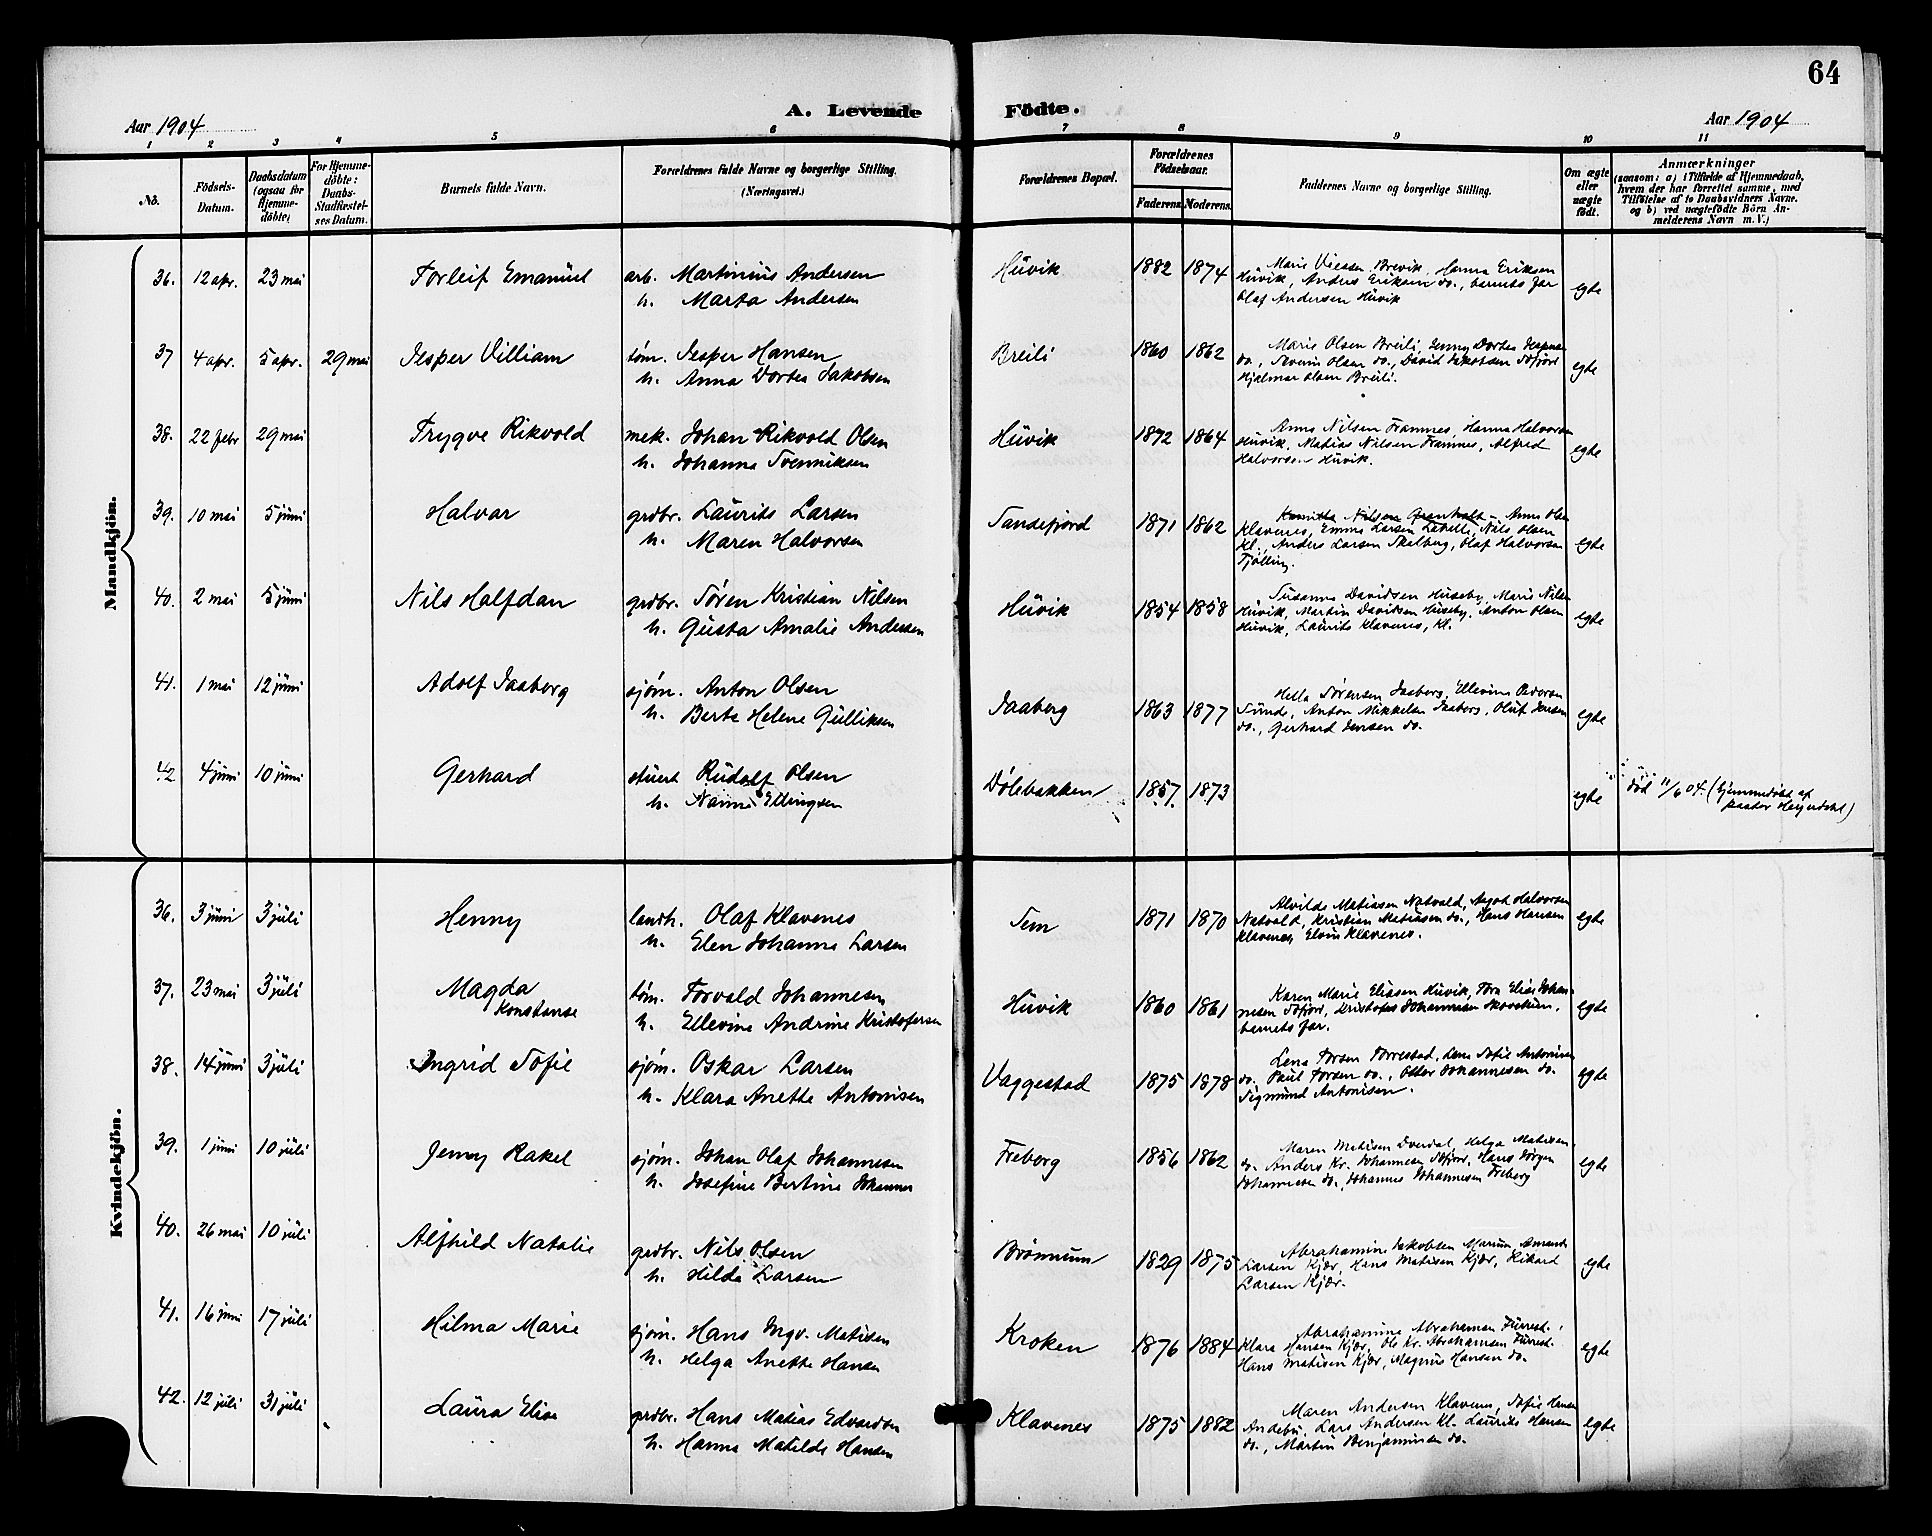 64
A. Levende Födte.
Aar 1904
Aar 1904
1 2 3 4 5 6 7 8 9 10 11
No.
Födsels-Datum.
Daabsdatum (ogsaa for Hjemmedöbte)
For Hjemmedöbte: Daabs-Stadfæstelses Datum.
Barnets fulde Navn.
Forældrenes fulde Navne og borgerlige Stilling. (Næringsvei.)
Forældrenes Bopæl.
Forældrenes Födselsaar.
Faderens Moderens
Faddernes Navne og borgerlige Stilling.
Om ægte eller uægte födt.
Anmærkninger
(saasom: a) i Tilfælde af Hjemmedaab,
hvem der har forrettet samme, med
Tilföielse af to Daabsvidners Navne.
og b) ved uægtefödte Börn Anmelderens Navn m. V.)
Mandkjön.
36. 12 apr. 23 mai Torleif Emanuel arb. Martinius Andersen Huvik 1882 1874 Marie Brevik, Hanna Eriksen
h. Marta Andersen Huvik, Anders Eriksen do., barnets far
Olaf Andersen Huvik egte
37 4 apr. 5 apr. 29 mai Jesper Villiam tøm. Jesper Hansen Breili 1860 1862 Marie Olsen Breili, Jenny Dortea
h. Anna Dortea Jakobsen do., Severin Olsen do., David Jakobsen
Hjalmar Olsen Breili. egte
38. 22 febr 29 mai Trygve Rikvold mek. Johan Rikvold Olsen Huvik 1872 1864 Anna Nilsen Framnes, Hanna Halvorsen
h. Johanna Svenniksen Huvik, Matias Nilsen Framnes, Alfred
Halvorsen Huvik. egte
39. 10 mai 5 juni Halvar grdbr. Laurits Larsen Sandefjord 1871 1862 Nilsen Anna Olsen
h. Maren Halvorsen Klavenes, Emma Larsen Nils Olsen
Kl., Anders Larsen Skalberg, Olaf Halvorsen
Tjølling. egte
40. 2 mai 5 juni Nils Halfdan grdbr. Søren Kristian Nilsen Huvik 1854 1858 Susanna Davidsen Huseby, Marie Nilsen
h. Gusta Amalie Andersen Huvik, Martin Davidsen Huseby, Anton Olsen
Huvik, Laurits Klavenes, Kl. egte
41. 1 mai 12 juni Adolf Jaaberg sjøm. Anton Olsen Jaaberg 1863 1877 Hella Sørensen Jaaberg, Ellevine
h. Berte Helene Gulliksen Sunde, Anton Mikkelsen Jaaberg, Oluf Jensen
do., Gerhard Jensen do. egte
42 4 juni 10 juni Gerhard stuert Rudolf Olsen Dølebakken 1857. 1873 egte død 11/6 04. (hjemmedøbt af
h. Nanna Ellingsen pastor Heyerdahl)
Kvindekjön.
36. 3 juni 3 juli Henny landh. Olaf Klavenes Sem 1871 1870 Alvilde Matiasen Natvald, Aagot Halvorsen
h. Elen Johanna Larsen Natvald, Kristian Matiasen do., Hans Hansen
Klavenes, Elvin Klavenes. egte
37. 23 mai 3 juli Magda Konstanse tøm. Torvald Johannesen Huvik 1860 1861 Karen Marie Eliasen Huvik, Tora Elise Johannesen
h. Ellevine Andrine Kristofersen Kristofer Johannesen Skovekum,
barnets far. egte
38. 14 juni 3 juli Ingrid Sofie sjøm. Oskar Larsen Vaggestad 1875 1878 Lena Torsen Torrestad, Lena Sofie Antonisen
h. Klara Anette Antonisen do. Paul Torsen do., Otter Johannesen do.
Sigmund Antonisen. egte
39. 1 juni 10 juli Jenny Rakel sjøm. Johan Olaf Johannesen Freberg 1856 1862 Maren Matisen Helga Matisen
h. Josefine Bertine Johannes do. Anders Kr. Johannesen Hans Jørgen
Johannesen do., Johannes Johannesen Freberg egte
40. 26 mai 10 juli Alfhild Natalie grdbr. Nils Olsen Brønnum 1829 1875 Abrahamine Jakobsen Marum Amanda
h. Hilda Larsen Larsen Kjær, Hans Matisen Kjær, Rikard
Larsen Kjær. egte
41. 16 juni 17 juli Hilma Marie sjøm. Hans Ingv. Matisen Kroken 1876 1884 Abrahamine Abrahamsen Furrest.,
h. Helga Anette Hansen Klara Hansen Kjær, Ole Kr. Abrahamsen Furrest.
Hans Matisen Kjær, Magnus Hansen do. egte
42. 12 juli 31 juli Laura Elise grdbr. Hans Matias Edvardsen Klavenes 1875 1882 Maren Andersen Klavenes, Sofie Hansen
h. Hanna Matilde Hansen Andebu, Lars Andersen Kl. Laurits Hansen
do., Martin Benjaminsen do. egte